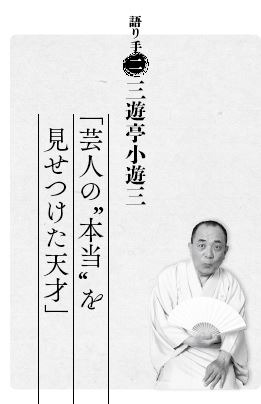 語り手二 三遊亭小遊三
「芸人の〝本当〟を
見せつけた天才」